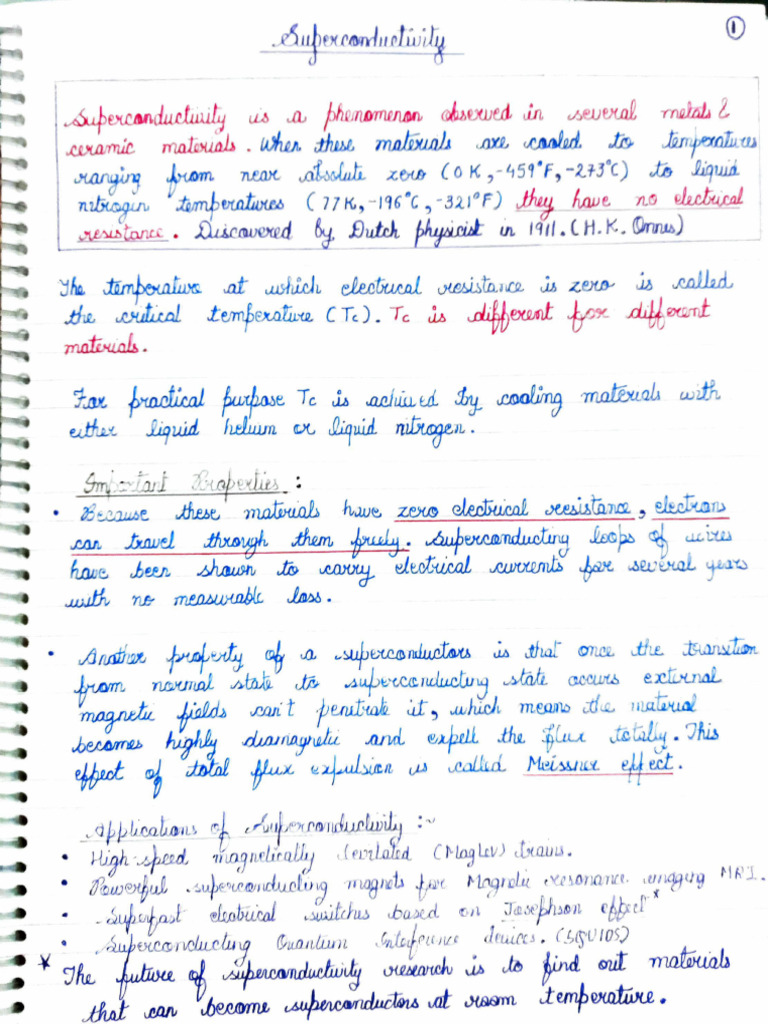 1
Superconductivity
Superconductivity is a phenomenon observed in several metals &
ceramic materials. When these materials are cooled to temperatures
ranging from near absolute zero (0K, -459°F, -273°C) to liquid
nitrogen temperatures (77K, -196°C, -321°F) they have no electrical
resistance. Discovered by Dutch physicist in 1911. (H.K. Onnes)
The temperature at which electrical resistance is zero is called
the critical temperature (Tc). Tc is different for different
materials.
For practical purpose Tc is achieved by cooling materials with
either liquid helium or liquid nitrogen.
Important Properties :
• Because these materials have zero electrical resistance, electrons
can travel through them freely. Superconducting loops of wires
have been shown to carry electrical currents for several years
with no measurable loss.
• Another property of a superconductors is that once the transition
from normal state to superconducting state occurs external
magnetic fields can't penetrate it, which means the material
becomes highly diamagnetic and expell the flux totally. This
effect of total flux expulsion is called Meissner effect.
Applications of Superconductivity :~
• High speed magnetically levitated (MagLev) trains.
• Powerful superconducting magnets for Magnetic resonance imaging MRI.
• Superfast electrical switches based on Josephson effect*
• Superconducting Quantum Interference devices. (SQUIDS)
* The future of superconductivity research is to find out materials
that can become superconductors at room temperature.